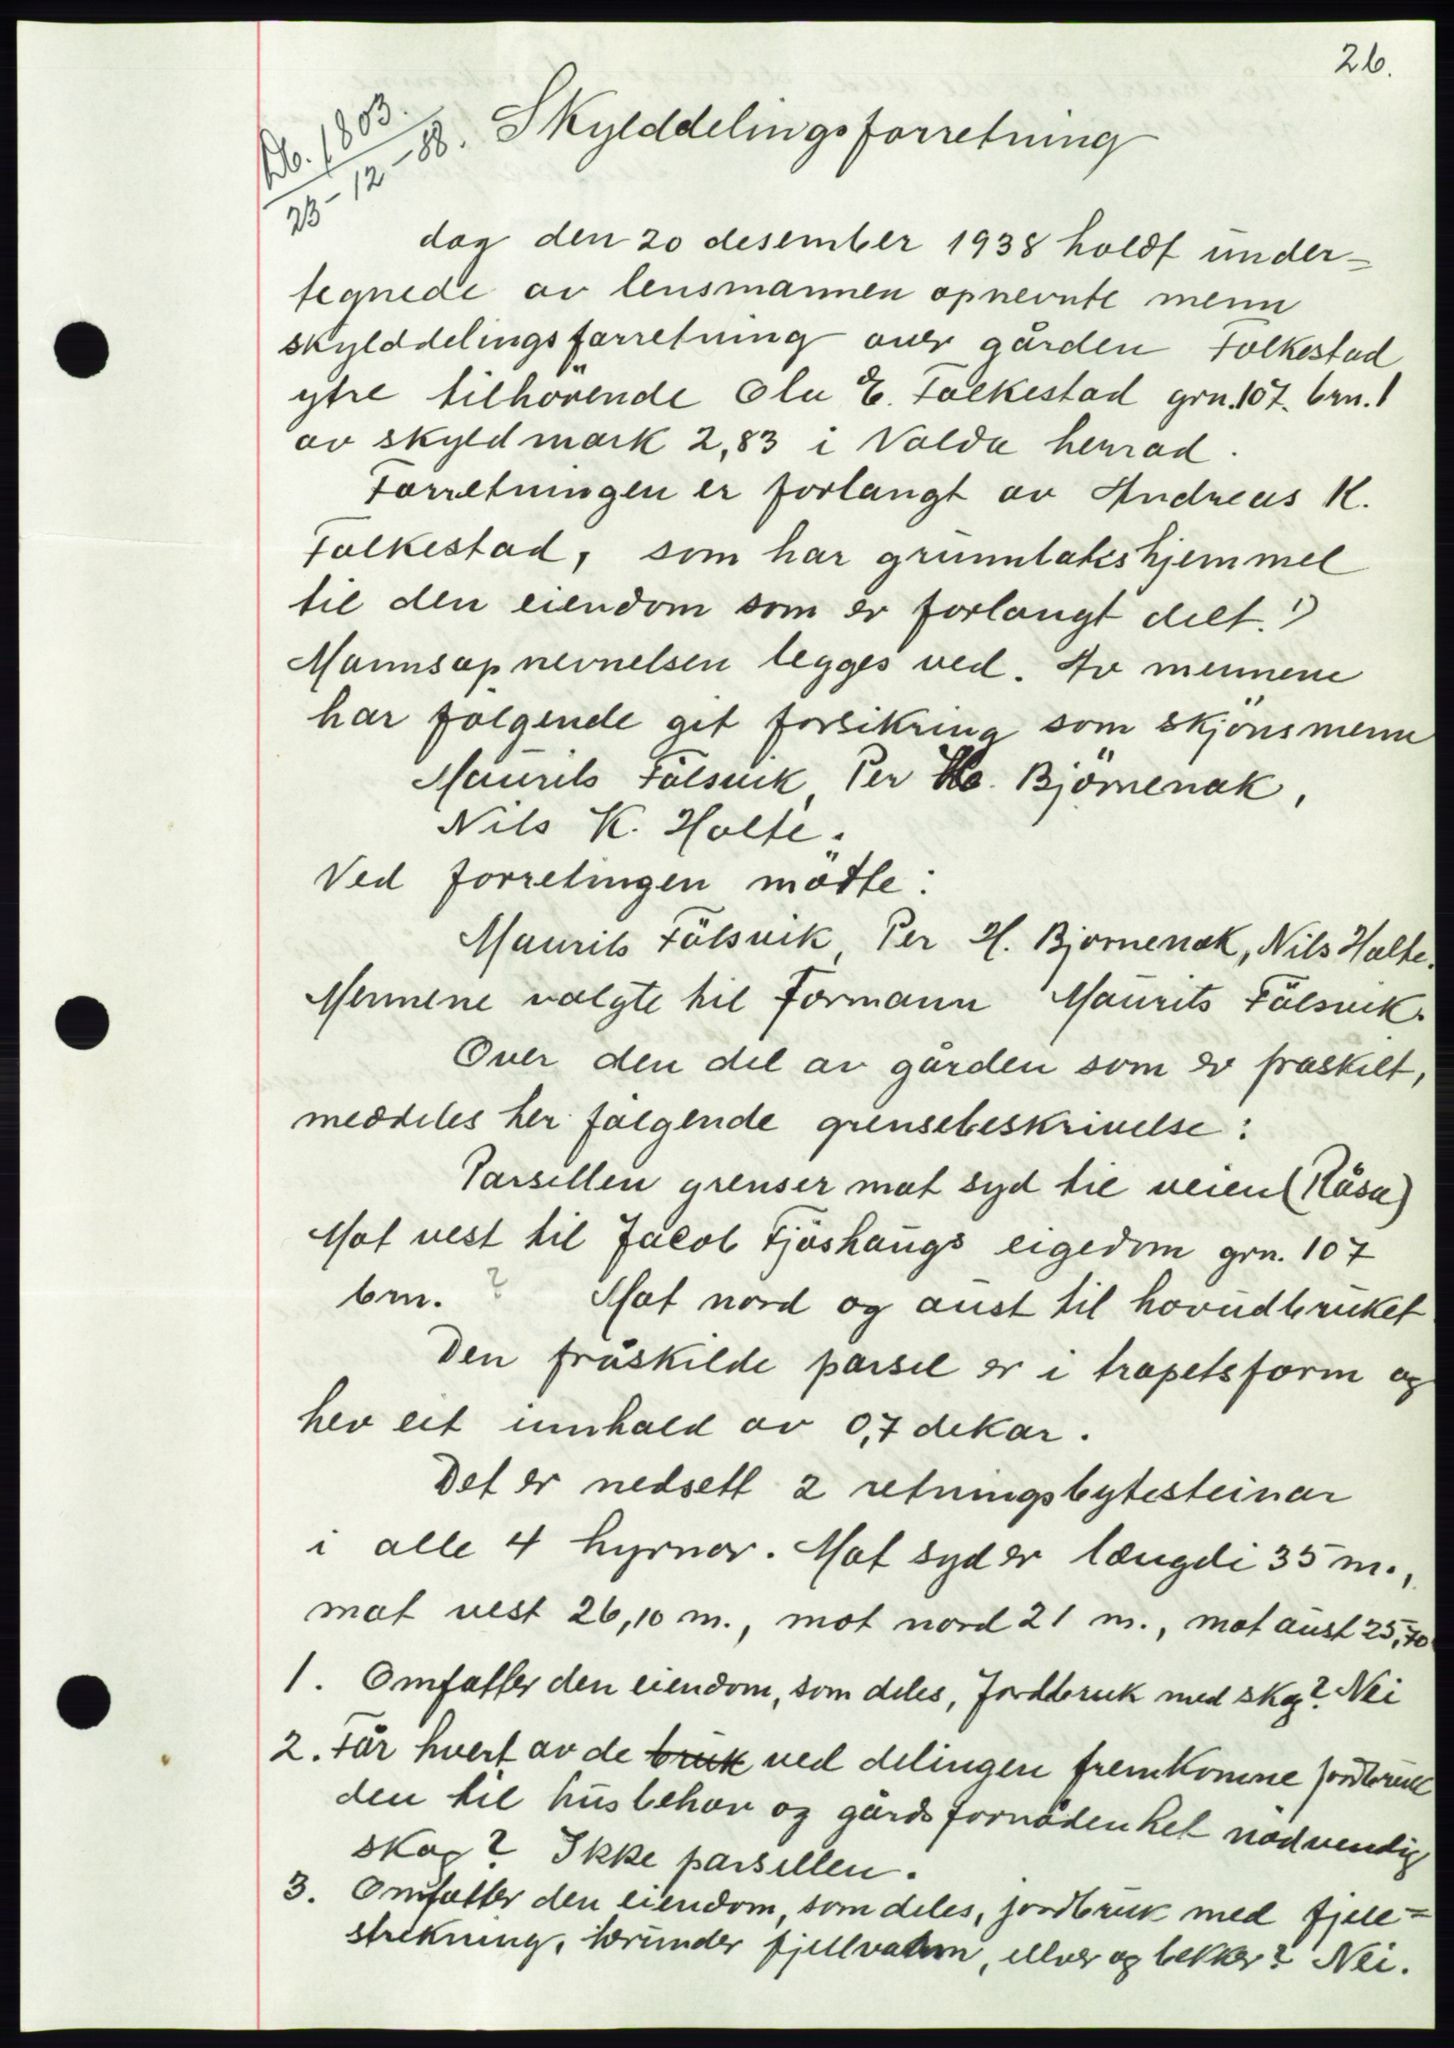 26.
Db. 1803.
23-12-88.
Skylddelingsforretning
dag den 20 desember 1938 holdt under=
tegnede av lensmannen opnevnte menn
skylddelingsforretning over gården Folkestad
ytre tilhörende Ola E. Folkestad grn. 107. brn. 1
av skyldmark 2,83 i Volda herrad.
Forretningen er forlangt av Andreas K.
Folkestad, som har grunnbokshjemmel
til den eiendom som er forlangt delt. 1)
Mannsopnevnelsen legges ved. Av mennene
har følgende git forsikring som skjönsmenn
Maurits Fölsvik, Per H. Björnenak,
Nils K. Holte.
Ved forretingen mötte:
Maurits Fölsvik, Per H. Bjornenak, Nils Holte.
Mennene valgte til Formann Maurits Fölsvik.
Over den del av gården som er fraskilt,
meddeles her følgende grensebeskrivelse:
Parsellen grenser mot syd til veien (Råsa)
Mot vest til Jacob Fjöshaugs eigedom grn. 107
brn. ? Mot nord og aust til hovudbruket
Den fråskilde parsel er i trapetsform og
hev eit innhald av 0,7 dekar.
Det er nedsett 2 retningsbytesteinar
i alle 4 hyrnor. Mot syd er længdi 35 m.,
mot vest 26,10 m., mot nord 21 m., mot aust 25,70
1. Omfatter den eiendom, som deles, Jordbruk med skog? Nei
2. Får hvert av de bruk ved delingen fremkomne jordbruk
den til husbehov og gårdsfornödenhet nödvendig
skog? Ikke parsellen.
3. Omfatter den eiendom, som deles, jordbruk med fjell=
strekning, herunder fjellvatn, elver og bekker? Nei.